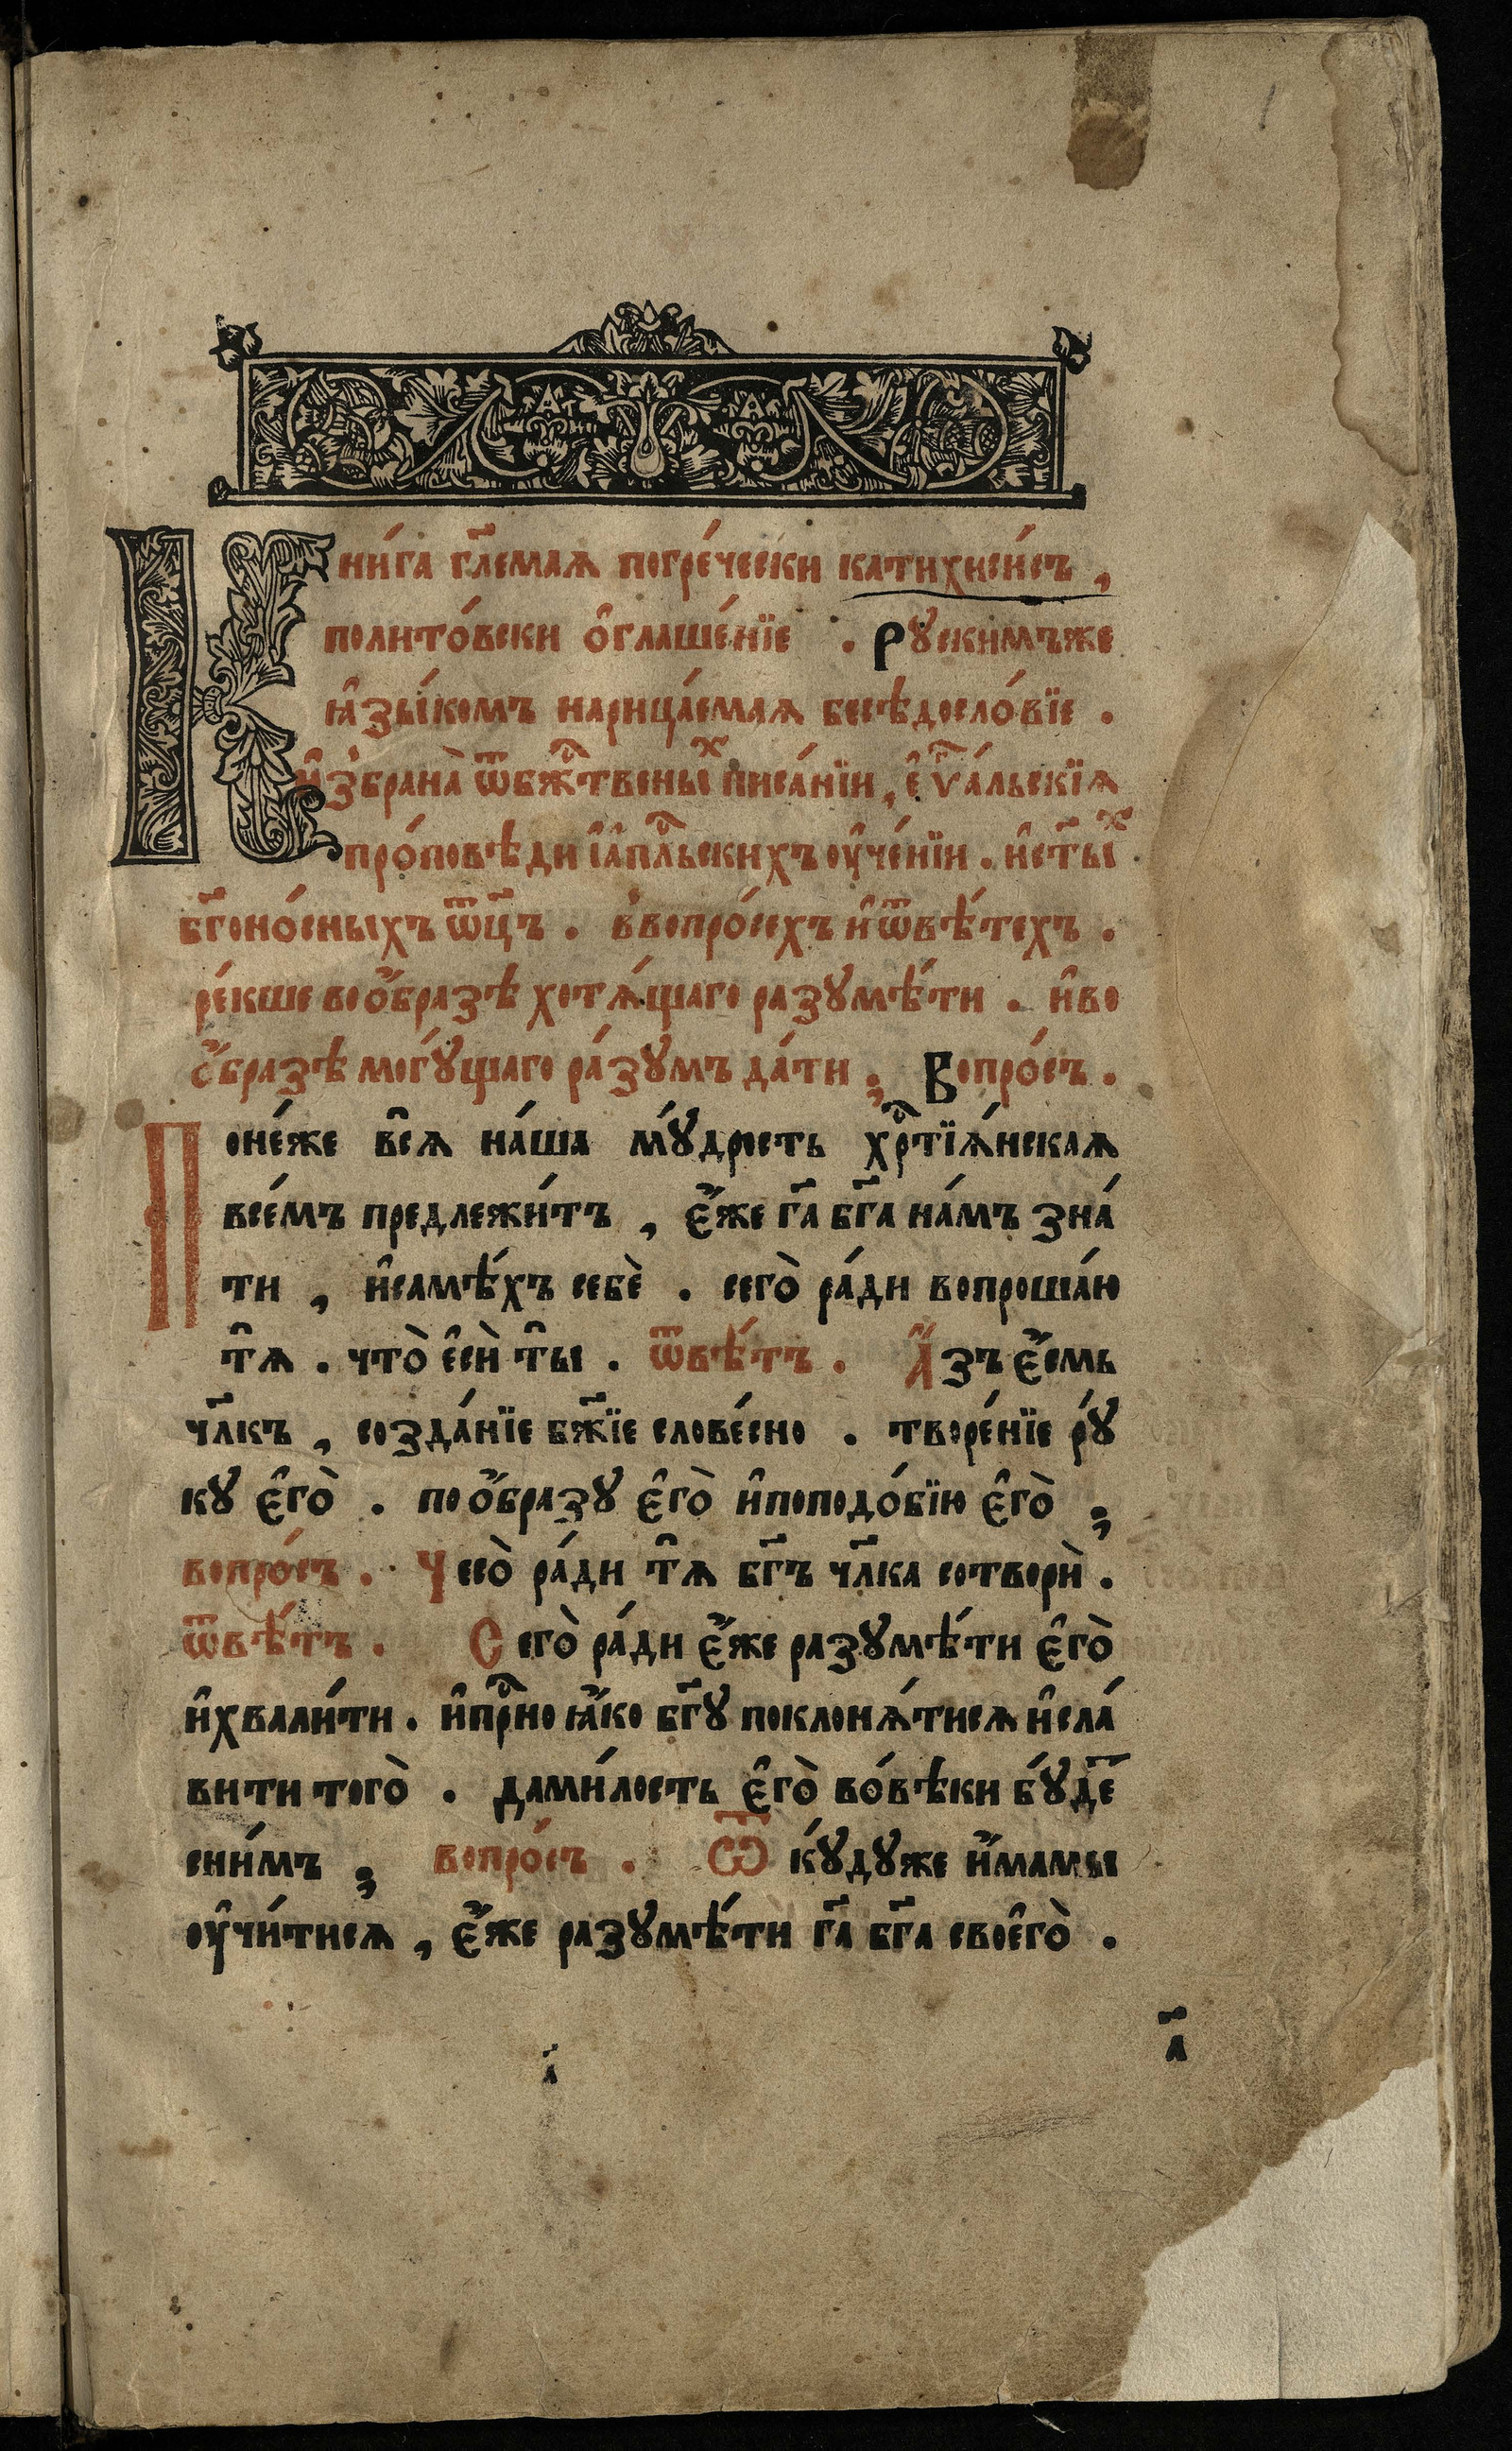 Кни́га гл҃емаѧ погре́чески катихиси́съ ,
полито́вски ѻ҆глаше́нїе . Рꙋскимъже
ꙗ҆зы́комъ нарица́емаѧ бесѣдосло́вїе .
и҆збрана̀ ѿбж҃твены́х писа́нїи , є҆ѵⷢ҇а́льскїѧ
про́повѣди і҆а҆пⷭ҇льскихъ ᲂу҆че́нїи . и҆ст҃ы́х
бг҃оно́сныхъ ѿц҃ъ . ввопро́сехъ и҆ѿвѣ́техъ .
ре́кше воѻ҆́бразѣ хотѧ́щаго разꙋмѣ́ти . и҆во
ѻ҆́бразѣ могꙋ́щаго ра́зꙋмъ да́ти ; Вопро́съ .
Поне́же всѧ̑ на́ша мꙋ́дрость хрⷭ҇тїѧ́нскаѧ
всѣ́мъ предлежи́тъ , є҆́же гд҃а бг҃а на́мъ зна́
ти , и҆самѣ́хъ себѐ . сего̀ ра́ди вопроша́ю
тѧ̑ . что̀ є҆сѝ ты̑ . ѿвѣ́тъ . А҆́зъ є҆́смь
чл҃къ , созда́нїе бж҃їе слове́сно . творе́нїе рꙋ́
кꙋ є҆го̀ . поѻ҆́бразꙋ є҆го̀ и҆поподо́бїю є҆го̀ ;
вопро́съ . Чесо̀ ра́ди тѧ̑ бг҃ъ чл҃ка сотворѝ .
ѿвѣ́тъ . Сего̀ ра́ди є҆́же разꙋмѣ́ти є҆го̀
и҆хвали́ти . и҆прⷭ҇но ꙗ҆́ко бг҃ꙋ поклонѧ́тисѧ и҆сла́
вити того̀ . дами́лость є҆го̀ во́вѣки бꙋ́де
сни́мъ ; вопро́съ . Ѿ кꙋ́дꙋже и҆́мамы
ᲂу҆чи́тисѧ , є҆́же разꙋмѣ́ти гд҃а бг҃а своє҆го̀ .
а҃
а҃